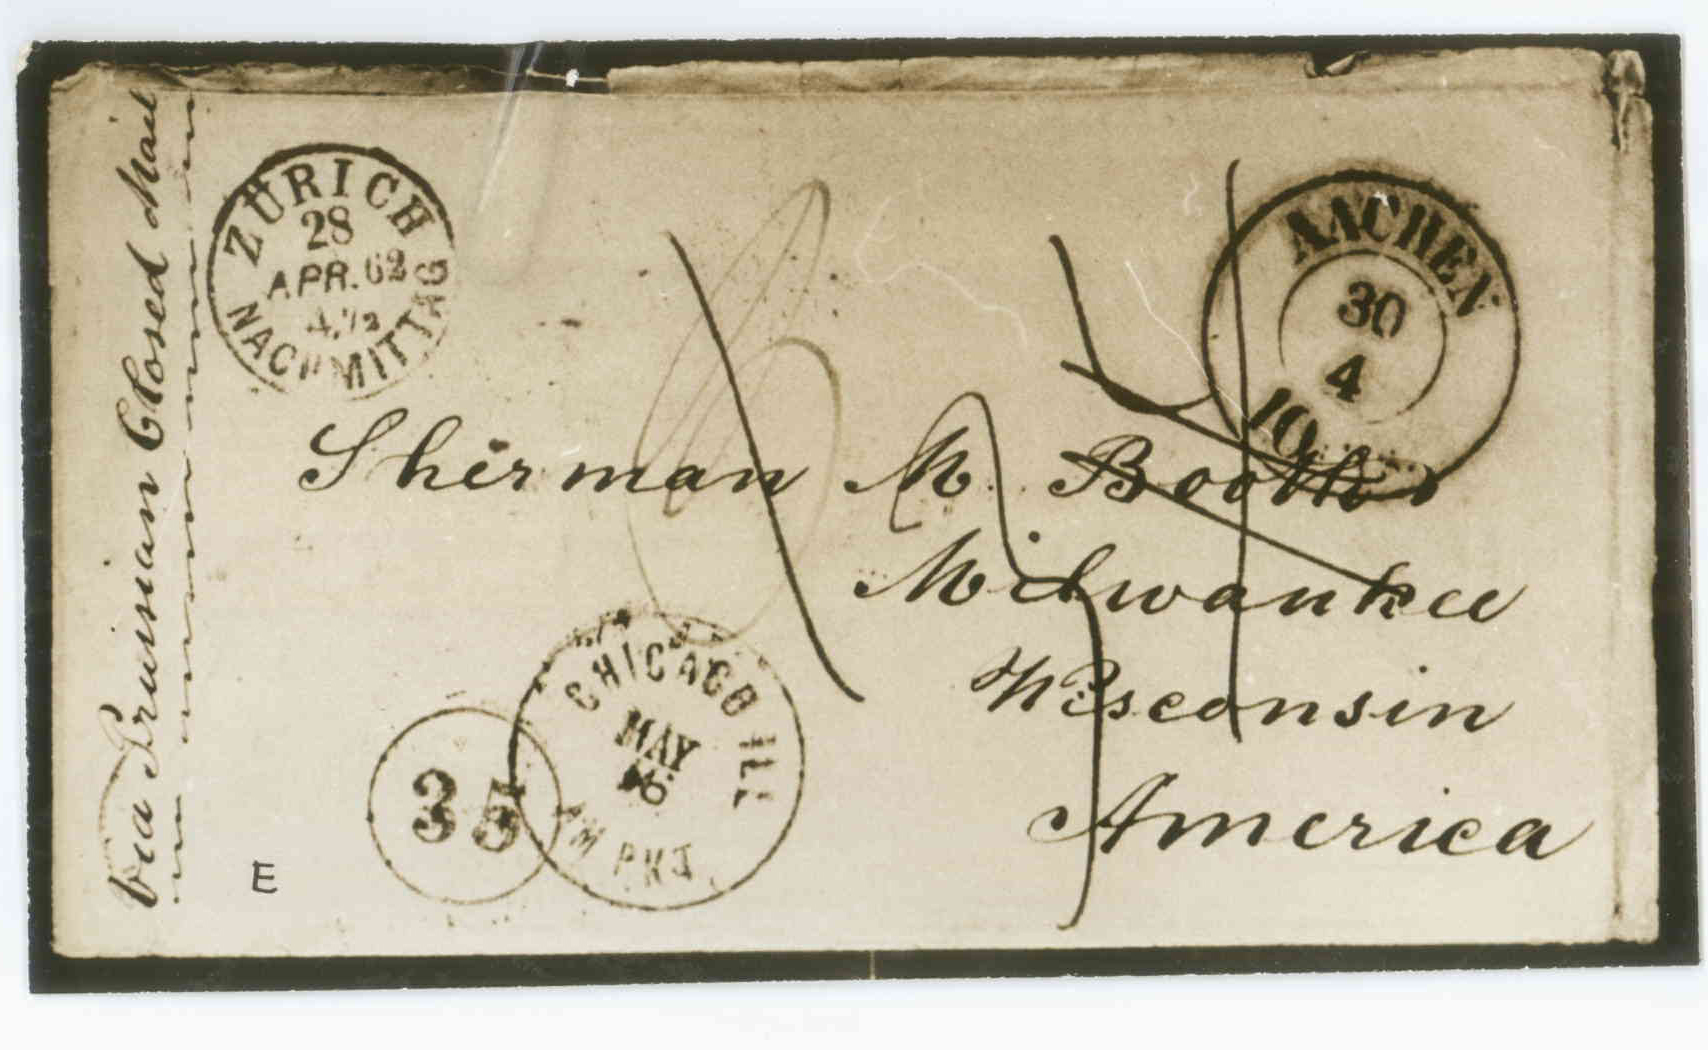 Via Prussian Closed Mail
ZÜRICH
28
APR. 62
NACHMITTAG
AACHEN
30
4
10
Sherman M. Booth
Milwaukee
Wisconsin
America
35
CHICAGO ILL
MAY
16
AM PKT
E